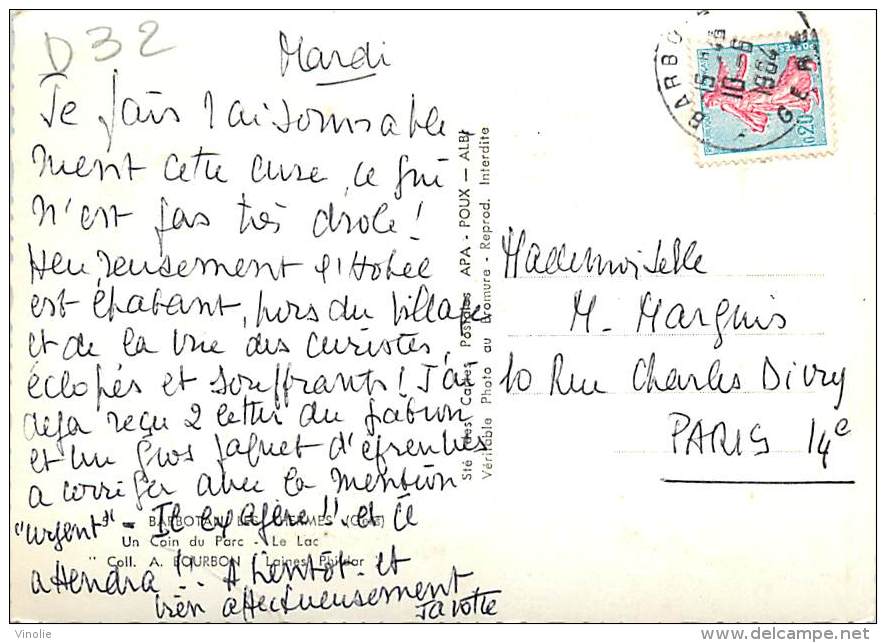 D32
Mardi
Je fais raisonnable
ment cette cure, ce qui
n'est pas très drôle !
Heureusement l'Hôtel
est épatant, hors du village
et de la vue des curistes,
éclopés et souffrants ! J'ai
déjà reçu 2 lettres du
et un gros paquet d'épreuves
a corriger avec la mention
"urgent" - Il exagère !! et ce
attendra !! A bientôt et
bien affectueusement
Javotte
BARBOTAN LES THERMES (Gers)
Un Coin du Parc - Le Lac
Coll. A. BOURBON Laines Phildar
Sté des Cartes Postales APA - POUX — ALBI
Véritable Photo au Bromure - Reprod. Interdite
BARBO
15 H
10 - 6
1964
GERS
POSTES
0,20
Mademoiselle
M. Marquis
10 Rue Charles Divry
PARIS 14e
Vinolie
delcampe.net